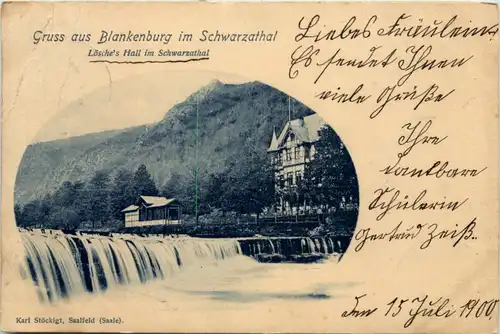 Gruss aus Blankenburg im Schwarzathal
Lösche's Hall im Schwarzathal
Liebes Fräulein
Es sendet Ihnen
viele Grüße
Ihre
dankbare
Schülerin
Gertrud Zeiß.
Den 15 Juli 1900
Karl Stöckigt, Saalfeld (Saale).